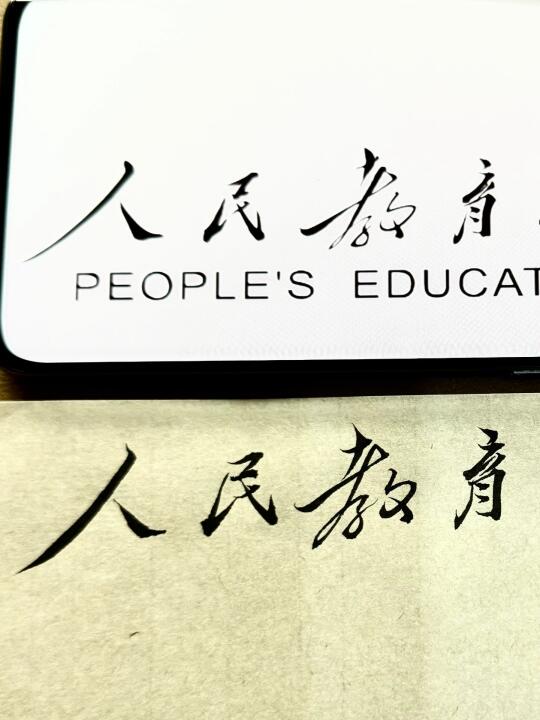 人民教育
PEOPLE'S EDUCAT
人民教育